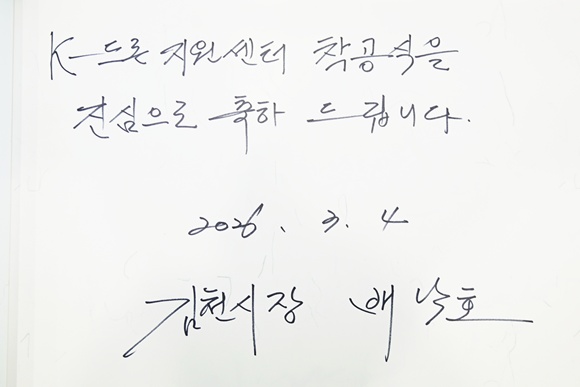 K-드론지원센터 착공식을
진심으로 축하 드립니다.
2026. 3. 4
김천시장 배낙호